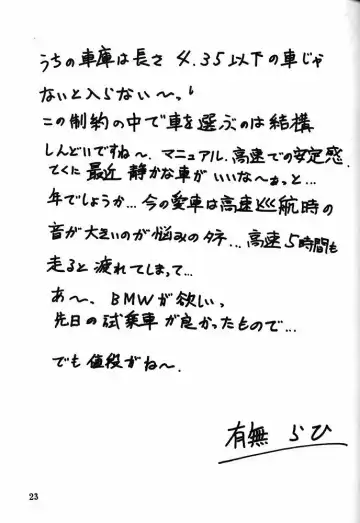 うちの車庫は長さ 4.35以下の車じゃ
ないと入らない〜。
この制約の中で車を選ぶのは結構
しんどいですね〜、マニュアル、高速での安定感、
てくに最近 静かな車がいいな〜ぁっと…
年でしょうか…今の愛車は高速巡航時の
音が大きいのが悩みのタネ…高速5時間も
走ると疲れてしまって…
あ〜、BMWが欲しい。
先日の試乗車が良かったもので…
でも値段がね〜。
有無らひ
23